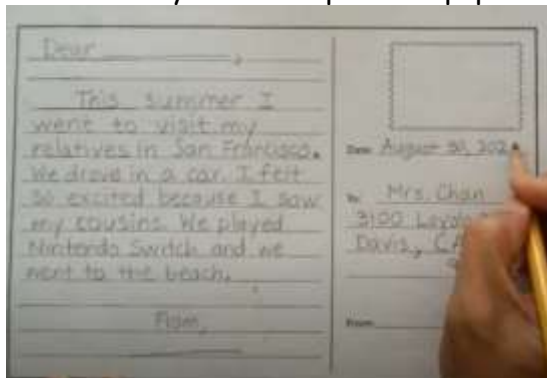 Dear
This summer I
went to visit my
relatives in San Francisco.
We drove in a car. I felt
so excited because I saw
my cousins. We played
Nintendo Switch and we
went to the beach.
From,
Date: August 30, 202
To: Mrs. Chan
3100 Loyola
Davis, CA
From: